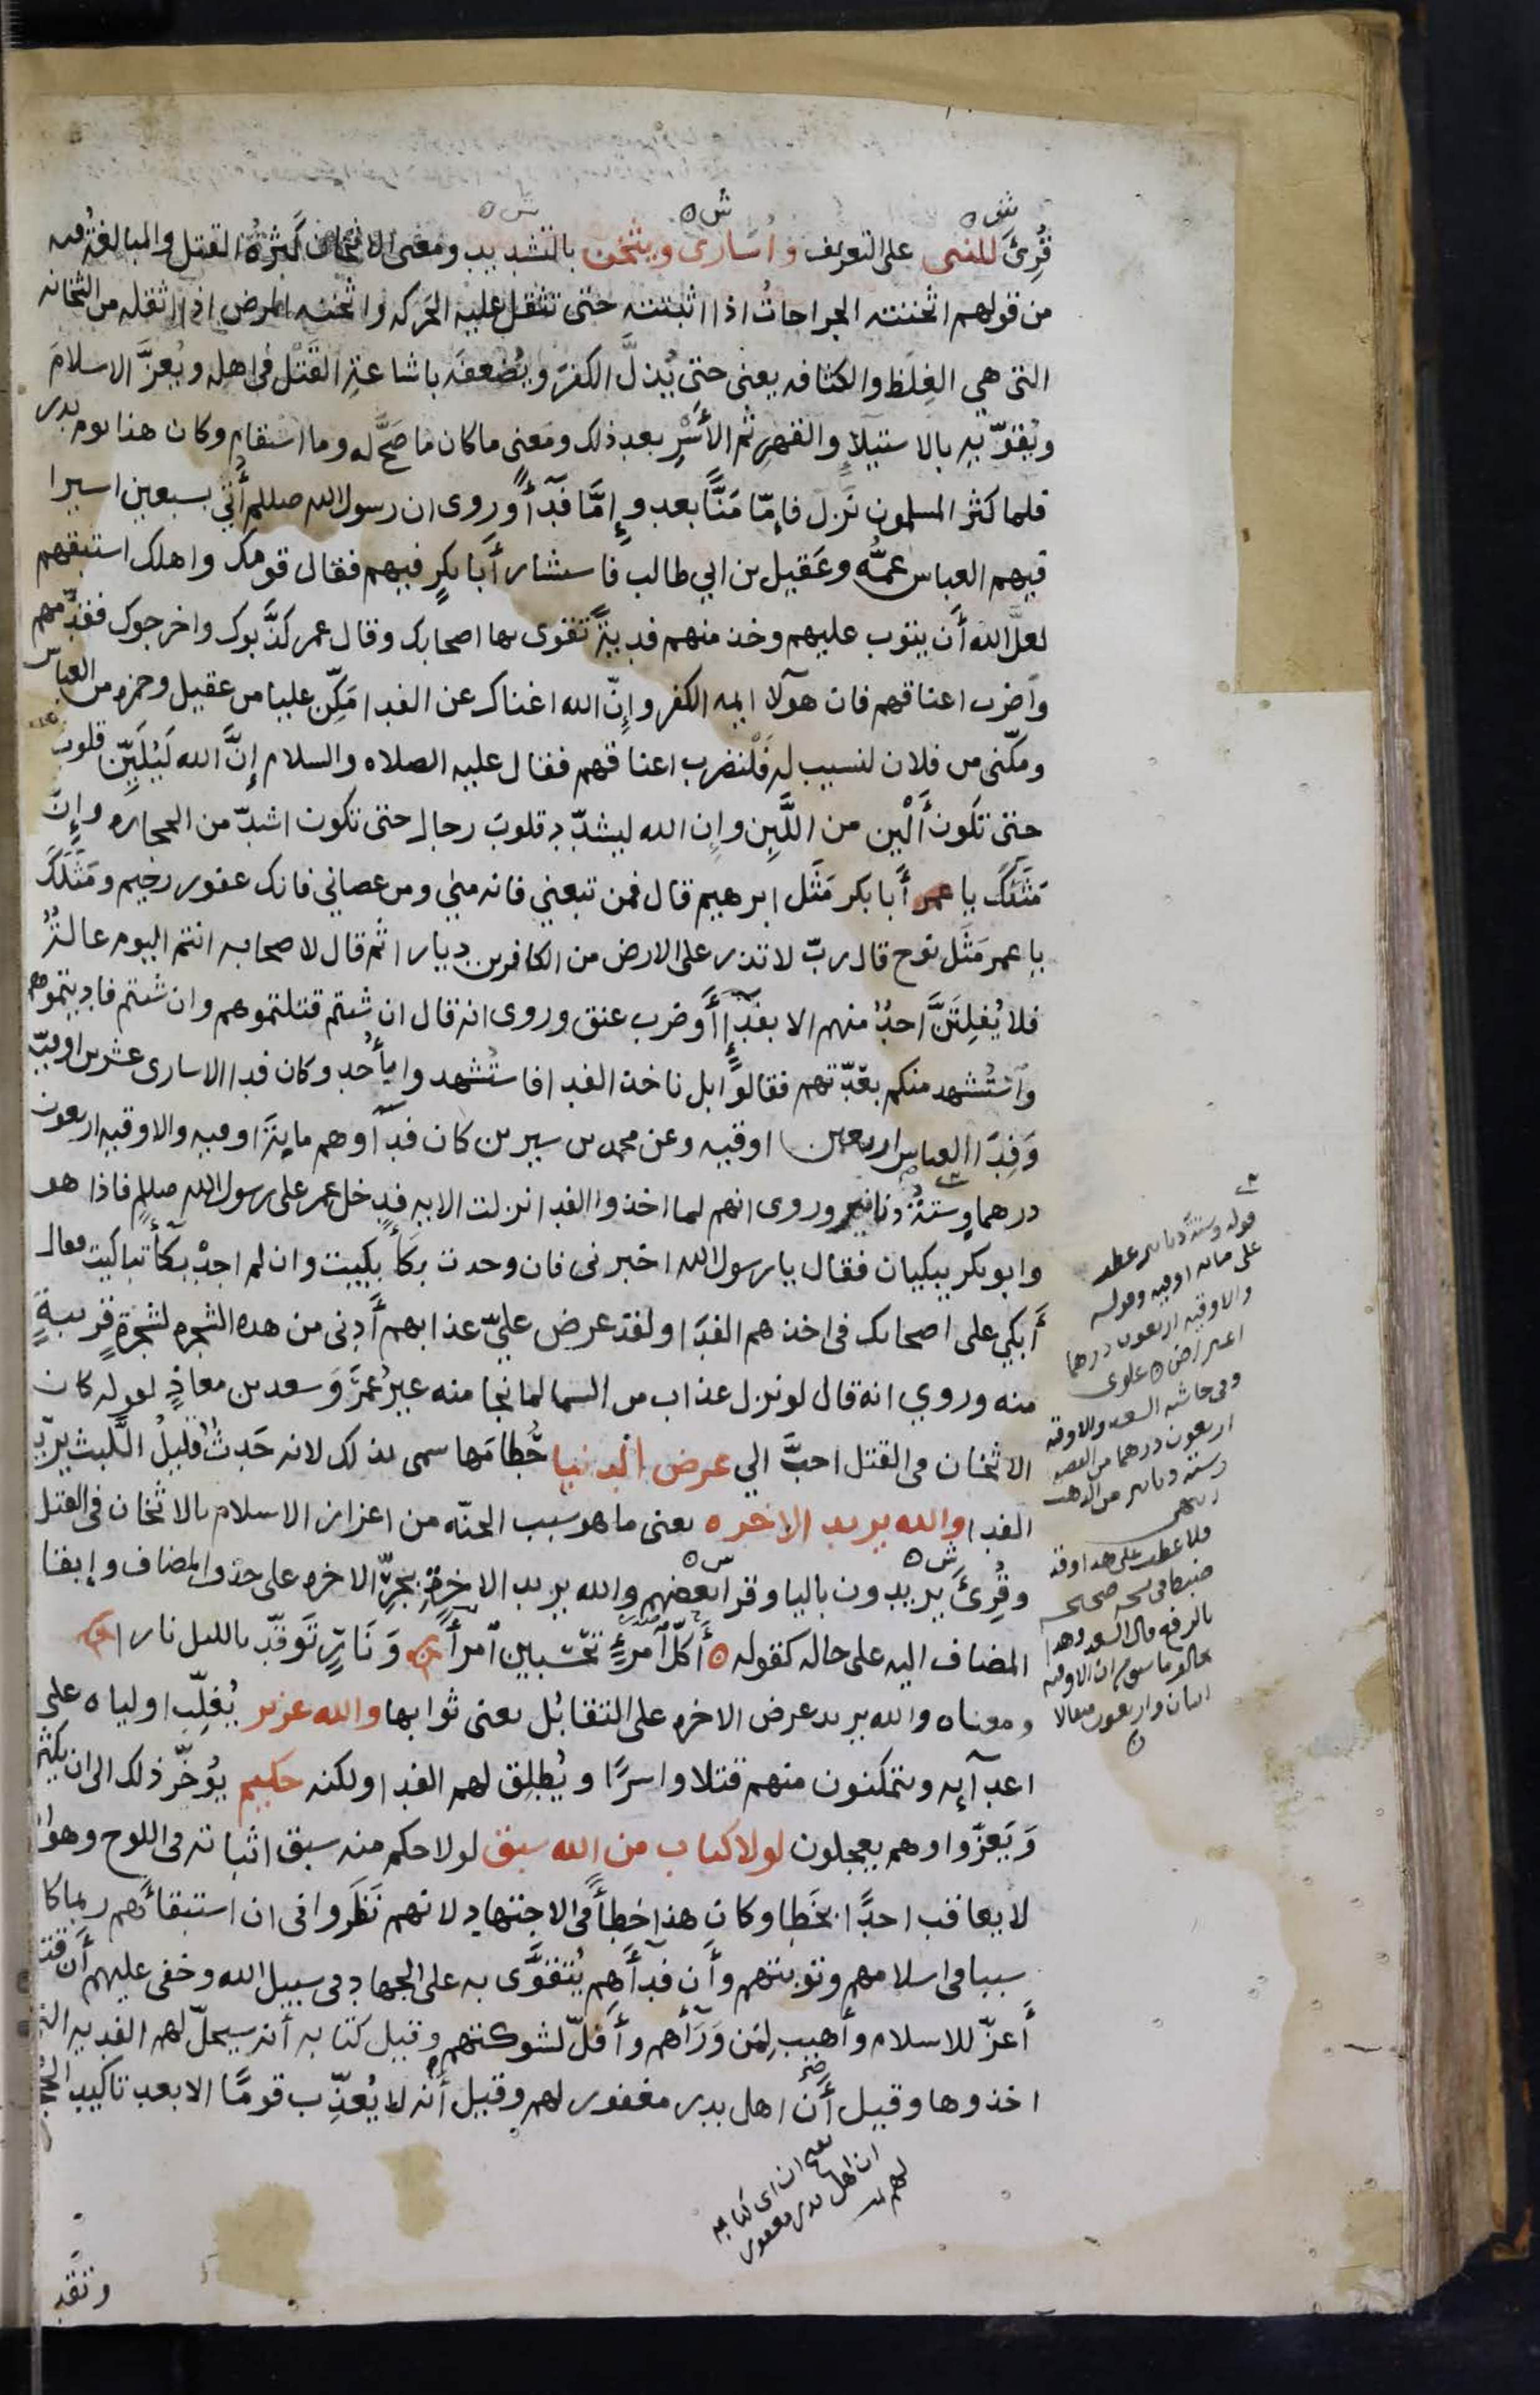 قُرِئَ للنبى على التعريف واُسارى ويثخّن بالتشديد ومعنى الاثخان كثرةُ القتل والمبالغةُ فيه
من قولهم اثخنته الجراحاتُ اذا اثبتته حتى تثقل عليه الحركه واثخنه المرض اذا اثقله من الثخانه
التى هي الغِلَظ والكثافه يعنى حتى يُذلَّ الكفرَ ويُضعفَه باشاعةِ القَتْل فى اهله ويُعزَّ الاسلامَ
ويُقوّيه بالاستيلاءِ والقهرِ ثم الأَسْرِ بعد ذلك ومَعنى ما كان ما صَحَّ له وما استقام وكان هذا يوم بدر
فلما كثر المسلمون نَزل فإمّا مَنًّا بعد وإِمَّا فدآءً وروى ان رسول الله صللم أُتى بسبعين اسيرا
فيهم العباس عمُّه وعَقيل بن ابي طالب فاستشار أَبا بكرٍ فيهم فقال قومك واهلك استبقهم
لعلَّ الله أَن يتوب عليهم وخذ منهم فديةً تقوى بها اصحابك وقال عمر كذَّبوك واخرجوك فقدِّمهم
واضرب اعناقهم فان هؤلا ايمه الكفر وإنّ الله اغناك عن الفدا مَكِّن عليا من عقيل وحمزه من العباس
ومكّنى من فلان لنسيب له فَلْنضرب اعناقهم فقال عليه الصلاه والسلام إنَّ الله لَيُلَيِّن قلوب
حتى تكونَ أَلْين من اللَّبِن وإن الله ليشدّد قلوبَ رجال حتى تكون اشدّ من الحجاره وإنّ
مَثَلَكَ يا أَبا بكر مَثَل ابرهيم قال فمن تبعني فانه منى ومن عصاني فانك غفور رحيم ومَثَلَكَ
يا عمر مَثَل نوح قال ربّ لا تذر على الارض من الكافرين ديارا ثم قال لاصحابه انتم اليوم عالةٌ
فلا يُفلِتَنَّ احدٌ منهم الا بفدآءٍ أَوضرب عنق وروى انه قال ان شئتم قتلتموهم وان شئتم فاديتموهم
واُستُشهد منكم بعدّتهم فقالوا بل ناخذ الفدا فاستُشهد وا بأُحد وكان فدا الاسارى عشرين اوقيّه
وَفِدَا العباس اربعين اوقيه وعن محمد بن سيرين كان فدآوهم مايةَ اوقيه والاوقيه اربعون
درهما وستةُ دنانير وروى انهم لما اخذوا الفدا نزلت الايه فدخل عمر على رسول الله صللم فاذا هو
وابو بكر يبكيان فقال يا رسول الله اخبرنى فان وجدت بكآء بكيت وان لم اجدْ بكآء تباكيت فقال
أَبكي على اصحابك فى اخذهم الفدَا ولقد عرض عليّ عذابهم أَدنى من هذه الشجره لشجرةٍ قريبةٍ
منه وروي انه قال لو نزل عذاب من السما لما نجا منه غيرُ عمَرَ وَسعد بن معاذٍ لقوله كان
الاثخان فى القتل احبَّ الي عرض الدنيا حُطامَها سمى بذلك لانه حَدثٌ قليلُ اللَّبث يريد
الفدا والله يريد الاخره يعنى ما هو سبب الجنّه من اعزاز الاسلام بالاثخان فى القتل
وقُرِئَ يريدون باليا وقرا بعضهم والله يريد الاخرةِ بجرّ الاخره على حذف المضاف وإبقا
المضاف اليه على حاله كقوله أَكلَّ امرِئٍ تحسبين امرأً وَنارٍ تَوقّد بالليل نارا
ومعناه والله يريد عرض الاخره على التقابُل يعنى ثوابها والله عزيز يُغلّب اولياه على
اعدآئه ويتمكنون منهم قتلا واسرًا ويُطلِق لهم الفدا ولكنه حكيم يُوخّر ذلك الى ان يكثر
وَيَعزّوا وهم يعجلون لولا كتاب من الله سبق لولا حكم منه سبق اثباته فى اللوح وهو ان
لا يعاقب احدًا بخَطا وكان هذا خطأً فى الاجتهاد لانهم نَظَروا فى ان استبقآءَهم ربما كا
سببا فى اسلامهم وتوبتهم وأن فدآءَهم يُتقوَّى به على الجهاد فى سبيل الله وخفى عليهم أن قت
أَعزّ للاسلام وأَهيب لِمَن وَرَآءهم وأَفلّ لشوكتهم وقيل كتابه أنه سيحلّ لهم الفديه التى
اخذوها وقيل أَن اهل بدر مغفور لهم وقيل أنه لا يُعذّب قومًا الا بعد تاكيد
قوله وستة دنانير عطف
على مايه اوقيه وقوله
والاوقيه اربعون درهما
اعتراض علوى
وفى حاشيه السعد والاوقيه
اربعون درهما من الفضه
وستة دنانير من الذهب
صحيحه
بالرفع قال السعد وهذا
يعنى ان اى كتابه
ان اهل بدر مغفور
لهم
وتقد